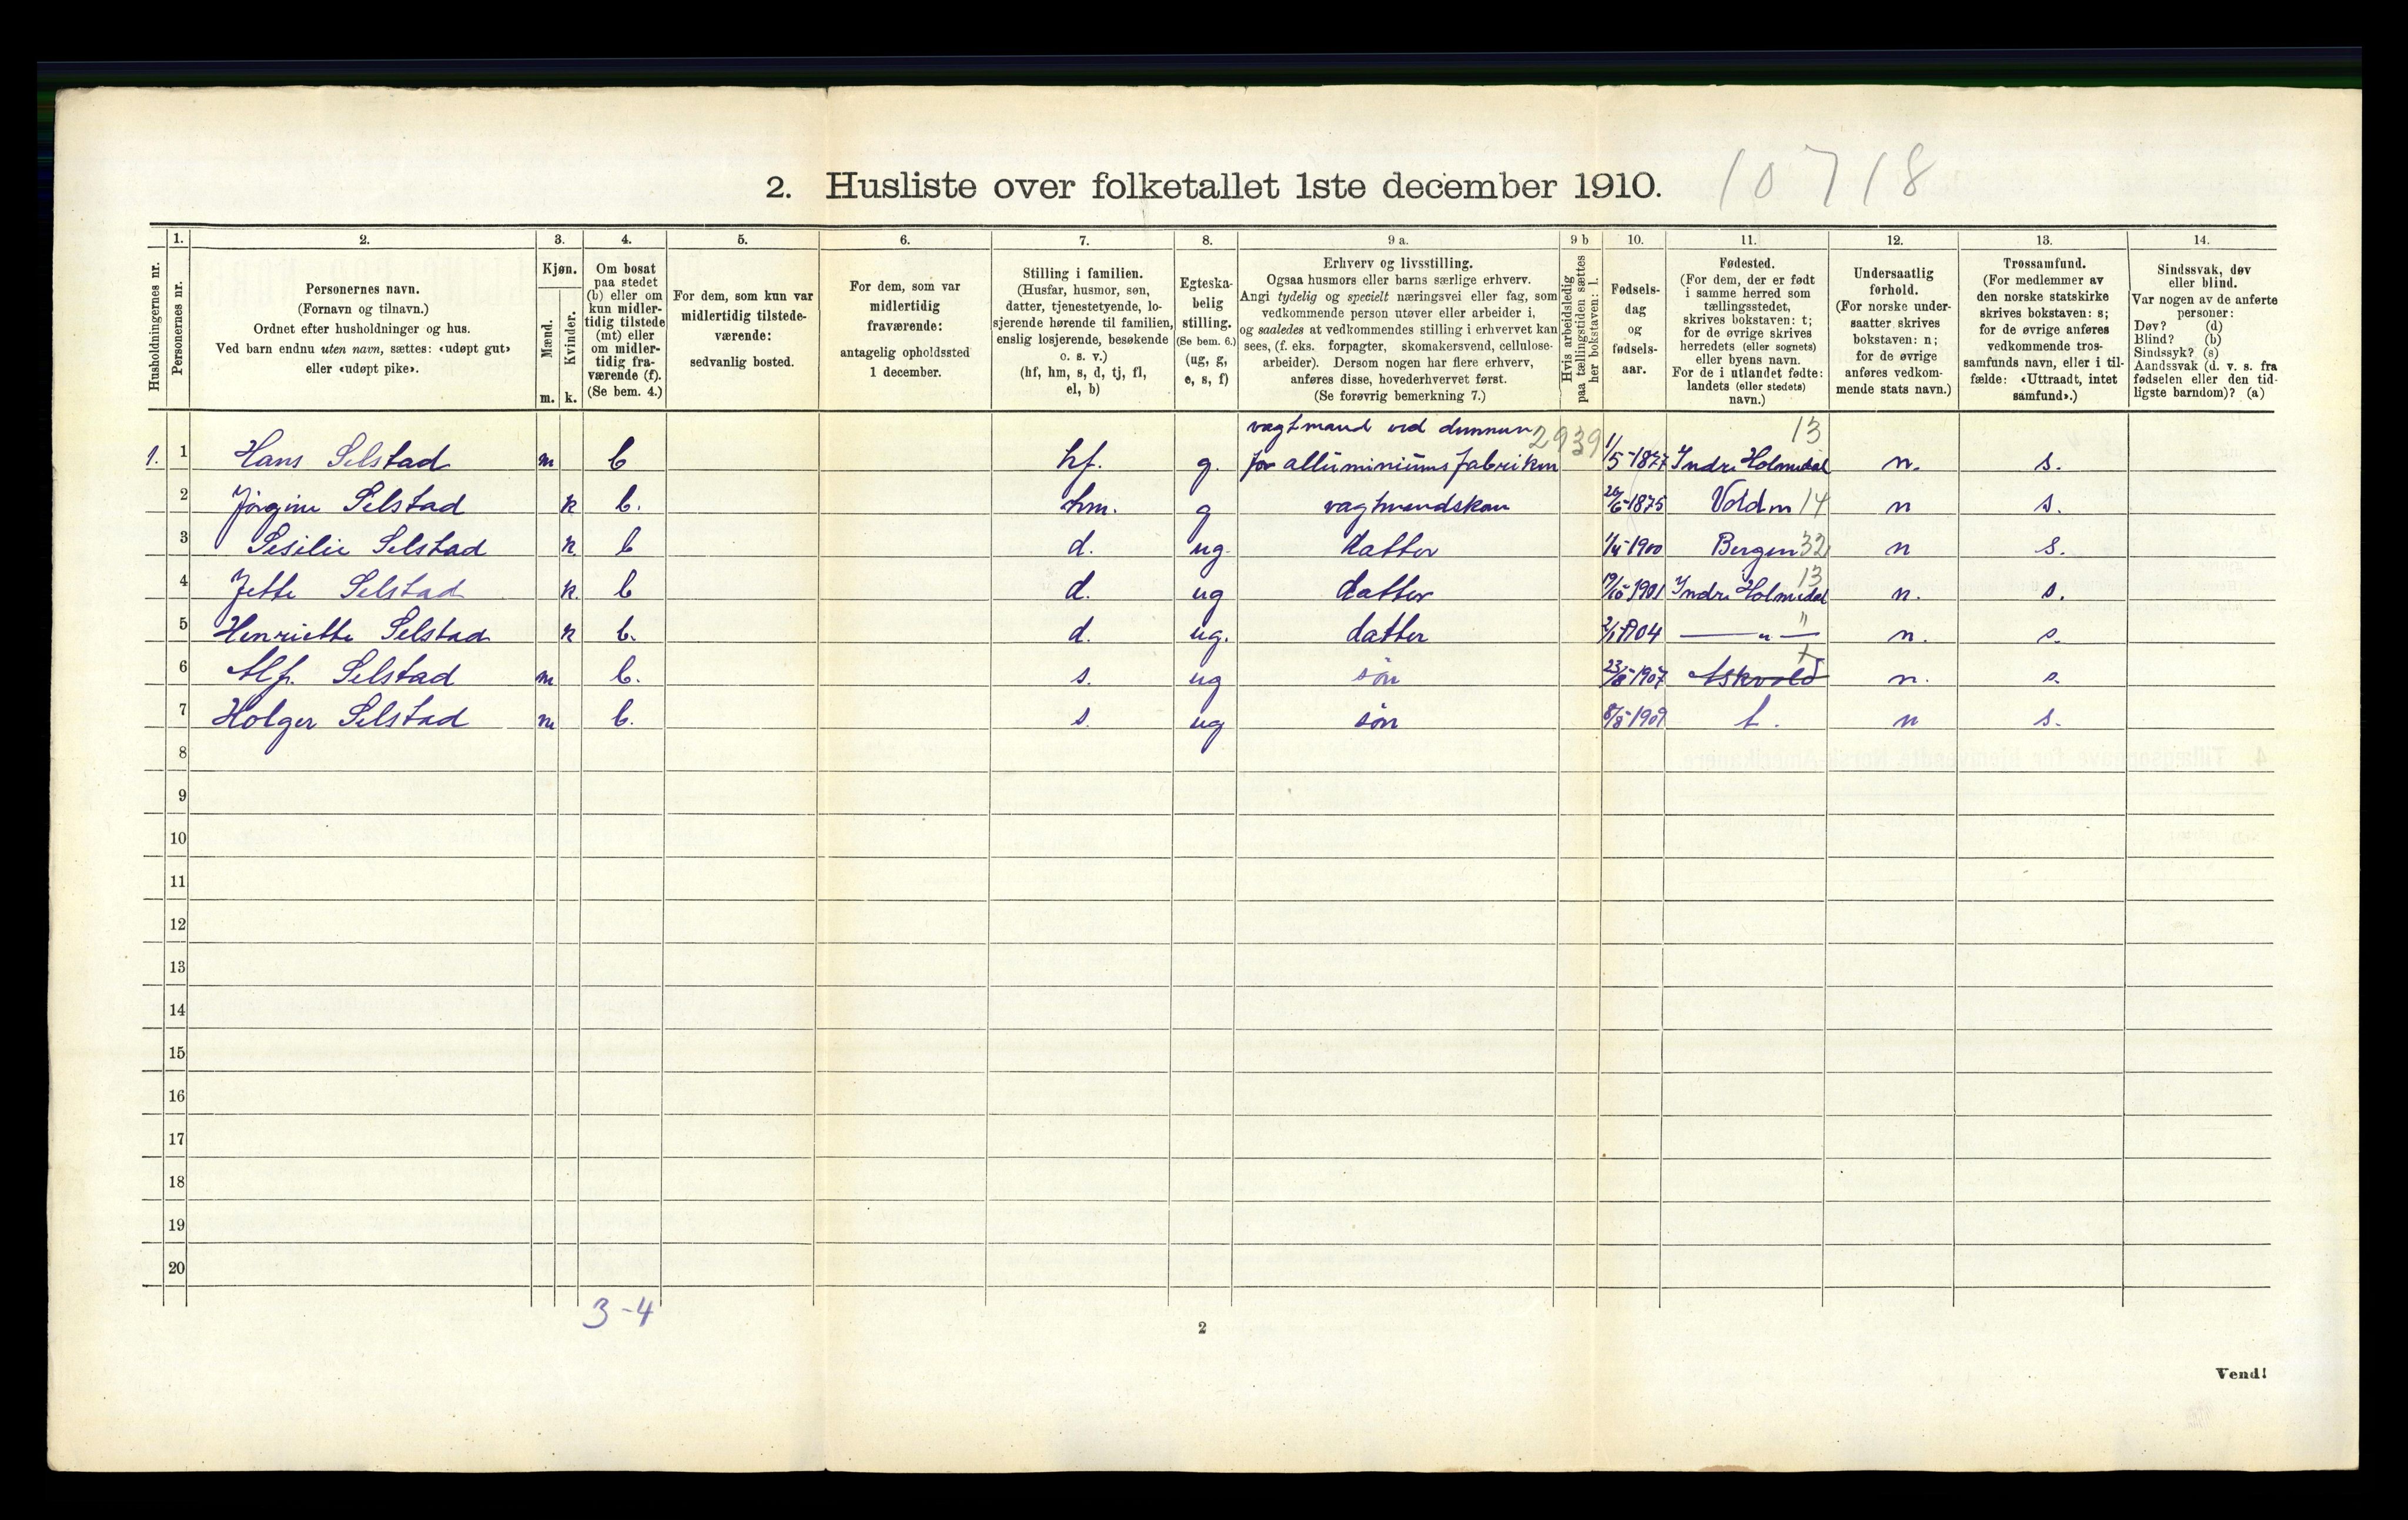 2. Husliste over folketallet 1ste december 1910. 10718
Husholdningernes nr.
1.
Personernes nr.
2.
Personernes navn.
(Fornavn og tilnavn.)
Ordnet efter husholdninger og hus.
Ved barn endnu uten navn, sættes: «udøpt gut»
eller «udøpt pike».
3.
Kjøn.
Mænd.
Kvinder.
m. k.
4.
Om bosat
paa stedet
(b) eller om
kun midler-
tidig tilstede
(mt) eller
om midler-
tidig fra-
værende (f).
(Se bem. 4.)
5.
For dem, som kun var
midlertidig tilstede-
værende:
sedvanlig bosted.
6.
For dem, som var
midlertidig
fraværende:
antagelig opholdssted
1 december.
7.
Stilling i familien.
(Husfar, husmor, søn,
datter, tjenestetyende, lo-
sjerende hørende til familien,
enslig losjerende, besøkende
o. s. v.)
(hf, hm, s, d, tj, fl,
el, b)
8.
Egteska-
belig
stilling.
(Se bem. 6.)
(ug, g,
e, s, f)
9 a.
Erhverv og livsstilling.
Ogsaa husmors eller barns særlige erhverv.
Angi tydelig og specielt næringsvei eller fag, som
vedkommende person utøver eller arbeider i,
og saaledes at vedkommendes stilling i erhvervet kan
sees, (f. eks. forpagter, skomakersvend, cellulose-
arbeider). Dersom nogen har flere erhverv,
anføres disse, hovederhvervet først.
(Se forøvrig bemerkning 7.)
9 b
Hvis arbeidsledig
paa tællingstiden sættes
her bokstaven: l.
10.
Fødsels-
dag
og
fødsels-
aar.
11.
Fødested.
(For dem, der er født
i samme herred som
tællingsstedet,
skrives bokstaven: t;
for de øvrige skrives
herredets (eller sognets)
eller byens navn.
For de i utlandet fødte:
landets (eller stedets)
navn.)
12.
Undersaatlig
forhold.
(For norske under-
saatter skrives
bokstaven: n;
for de øvrige
anføres vedkom-
mende stats navn.)
13.
Trossamfund.
(For medlemmer av
den norske statskirke
skrives bokstaven: s;
for de øvrige anføres
vedkommende tros-
samfunds navn, eller i til-
fælde: «Uttraadt, intet
samfund».)
14.
Sindssvak, døv
eller blind.
Var nogen av de anførte
personer:
Døv? (d)
Blind? (b)
Sindssyk? (s)
Aandssvak (d. v. s. fra
fødselen eller den tid-
ligste barndom)? (a)
vagtmand ved dunnun 2939 13
1. 1 Hans Selstad m b hf. g. for alluminiumsfabriken 1/5-1877 Indre Holmedal n. s.
2 Jørgine Selstad k b. hm. g vagtmandskone 26/6-1875 Volden 14 n s.
3 Sesilie Selstad k b d. ug. datter 1/4-1900 Bergen 32 n s.
13
4 Jette Selstad k. b d. ug datter 19/10-1901 Indre Holmedal n. s.
5 Henriette Selstad k b. d. ug. datter 2/1-1904 — " — " n. s.
6 Alf. Selstad m b. s. ug søn 23/8-1907 Askvold t n. s.
7 Holger Selstad m b. s. ug søn 8/8-1909 t. n s.
8
9
10
11
12
13
14
15
16
17
18
19
20
3-4
2
Vend!